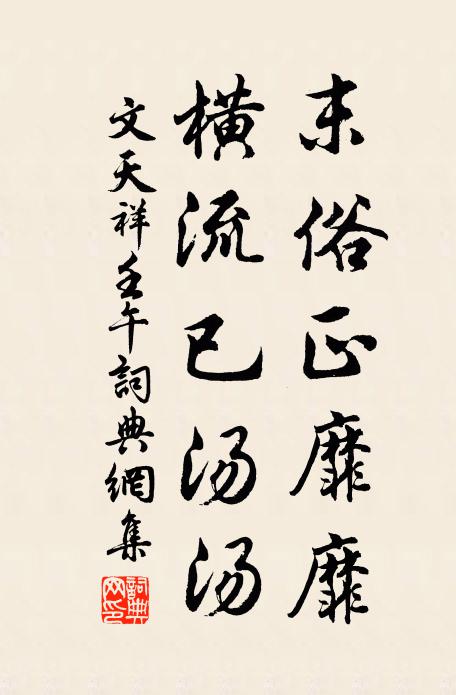 末俗正靡靡
横流已汤汤
文天祥壬午詞典網集
詞典网印